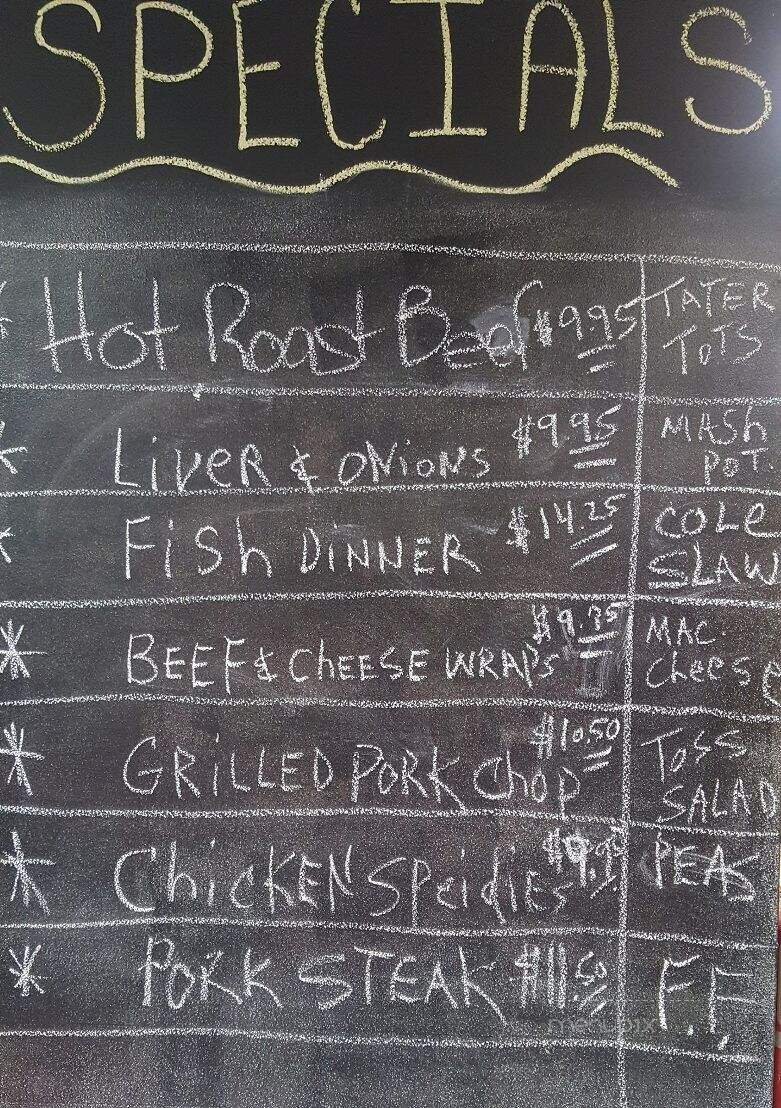 SPECIALS
* Hot Roast Beef $9.95 TATER TOTS
* LiveR & ONiONS $9.95 MASh POT.
* Fish DiNNER $14.25 COLE SLAW
* BEEF & ChEESE WRAPS MAC. Cheese
* GRiLLED PORK Chop $10.50 Toss SALAD
* ChicKEN Speidies PEAS
* PORK STEAK $11.50 F.F.
menupix